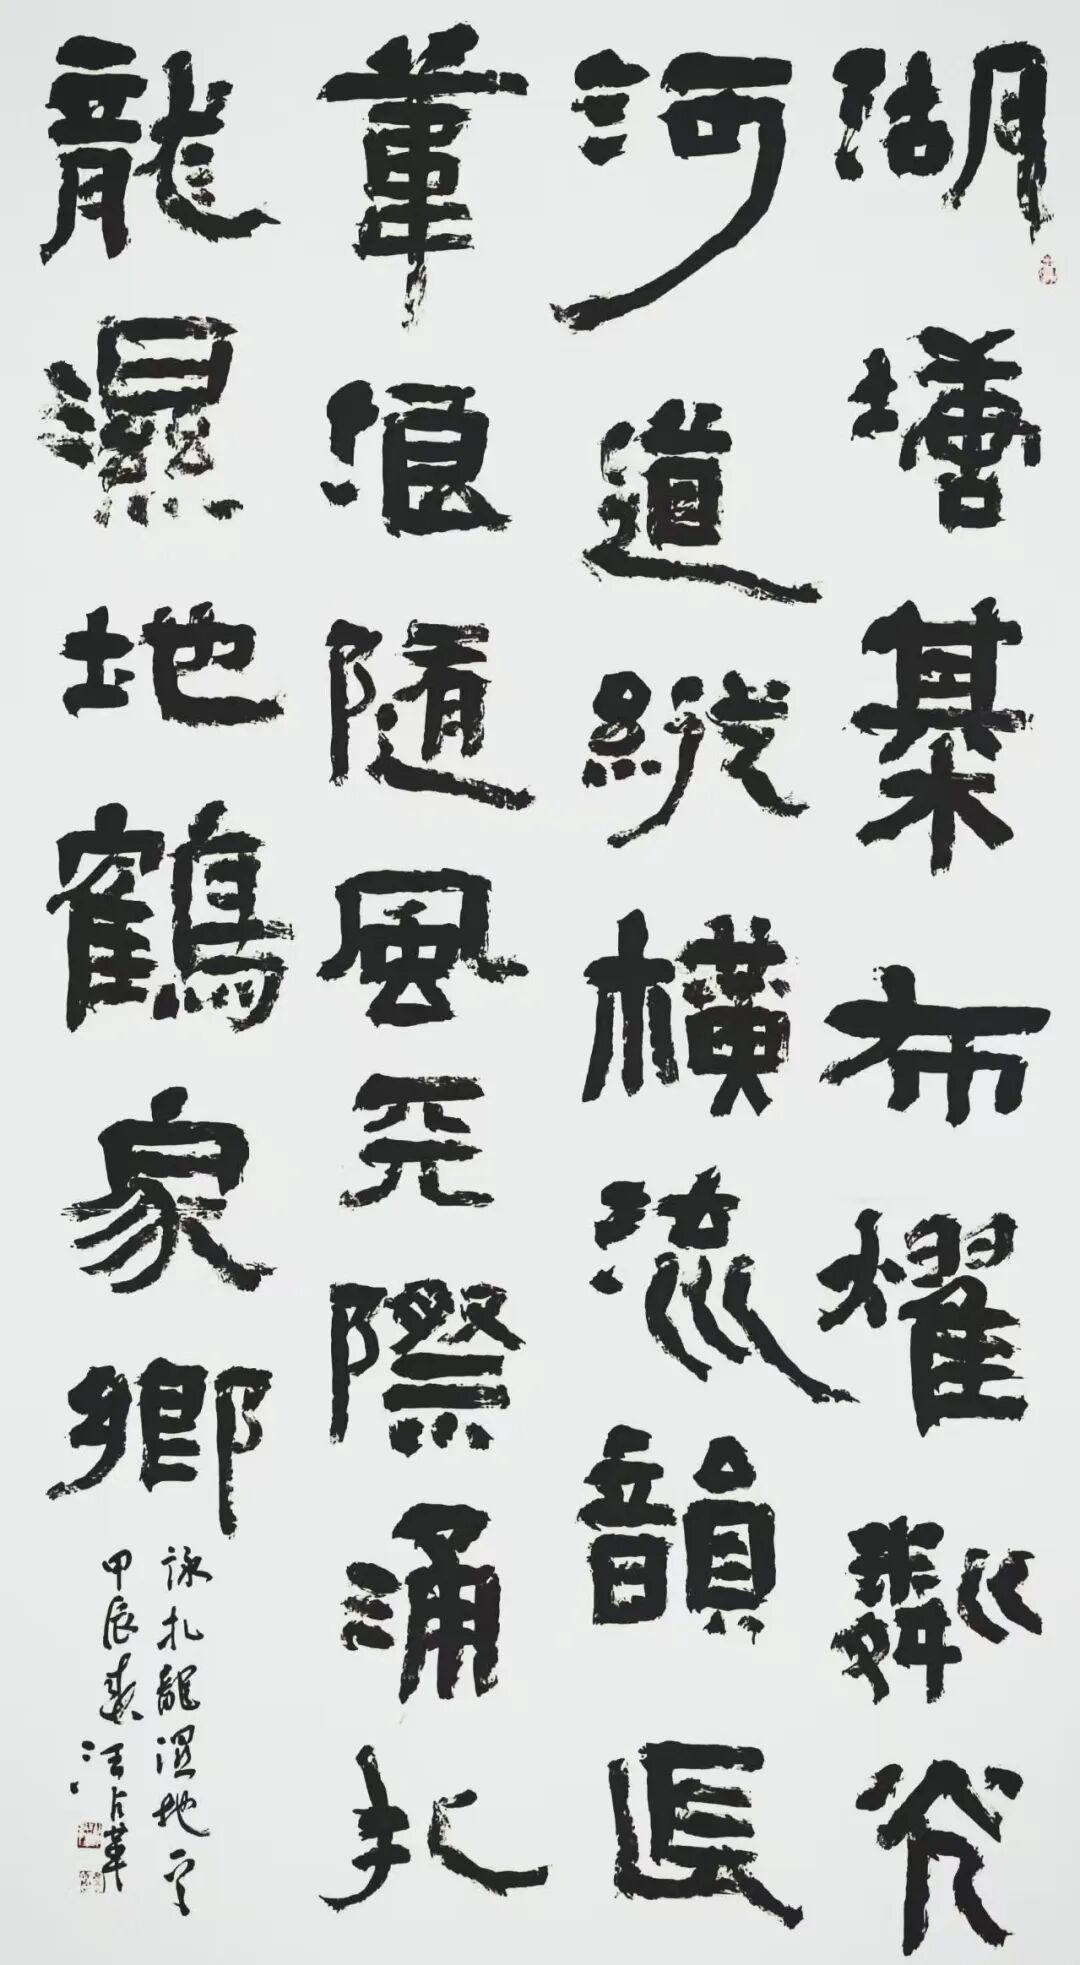 湖塘棊布耀粼光
河道縱橫流韻長
葦浪隨風天際涌扎
龍濕地鶴家鄉
詠扎龍濕地一首
甲辰 汪占革